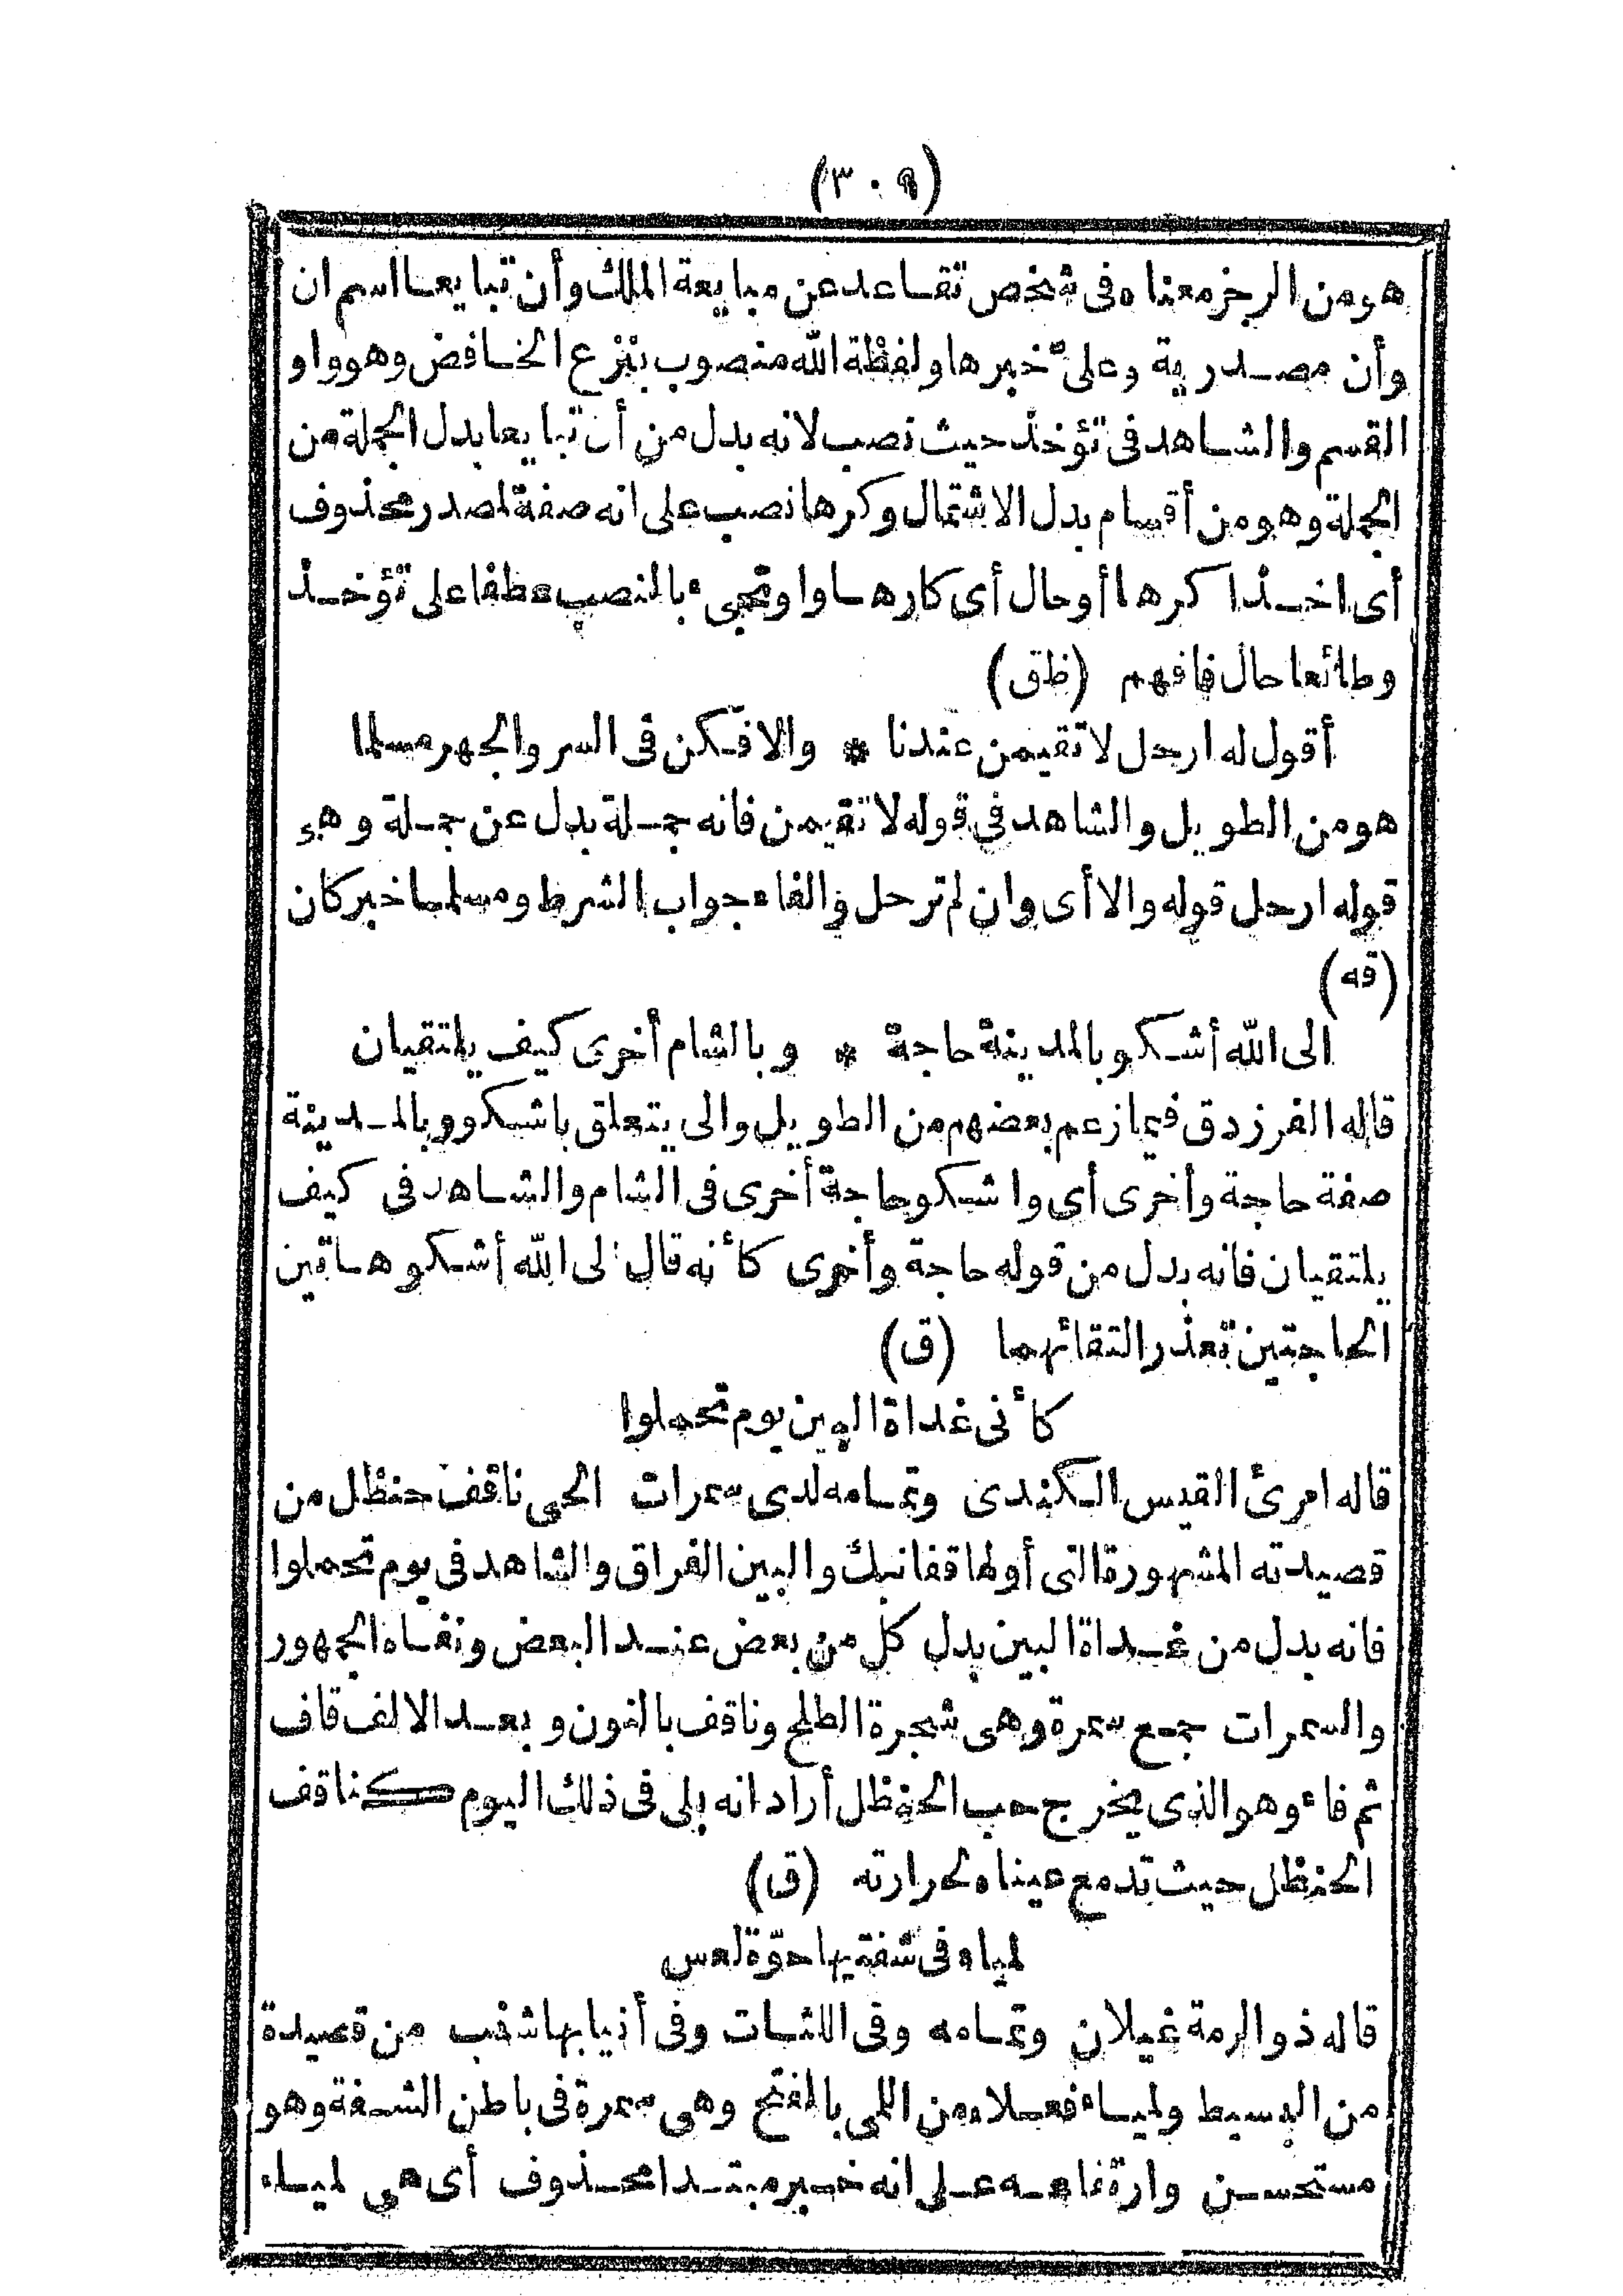 (٣٠٩)
هو من الرجز معناه فى شخص تقاعد عن مبايعة الملك وأن تبايعا اسم ان
وأن مصدرية وعلىّ خبرها ولفظة الله منصوب بنزع الخافض وهو واو
القسم والشاهد فى تؤخذ حيث نصب لانه بدل من أن تبايعا بدل الجملة من
الجملة وهو من أقسام بدل الاشتمال وكرها نصب على انه صفة لمصدر محذوف
أى اخذا كرها أو حال أى كارها واو تجىء بالنصب عطفا على تؤخذ
وطائعا حال فافهم (ظق)
أقول له ارحل لا تقيمن عندنا * والا فكن فى السر والجهر مسلما
هو من الطويل والشاهد فى قوله لا تقيمن فانه جملة بدل عن جملة وهى
قوله ارحل قوله والا أى وان لم ترحل والفاء جواب الشرط ومسلما خبر كان
(قه)
الى الله أشكو بالمدينة حاجة * وبالشام أخرى كيف يلتقيان
قاله الفرزدق فيما زعم بعضهم من الطويل والى يتعلق باشكو وبالمدينة
صفة حاجة وأخرى أى واشكو حاجة أخرى فى الشام والشاهد فى كيف
يلتقيان فانه بدل من قوله حاجة وأخرى كأنه قال الى الله أشكو هاتين
الحاجتين تعذر التقائهما (ق)
كأنى غداة البين يوم تحملوا
قاله امرئ القيس الكندى وتمامه لدى سمرات الحى ناقف حنظل من
قصيدته المشهورة التى أولها قفا نبك والبين الفراق والشاهد فى يوم تحملوا
فانه بدل من غداة البين بدل كل من بعض عند البعض ونفاه الجمهور
والسمرات جمع سمرة وهى شجرة الطلح وناقف بالنون وبعد الالف قاف
ثم فاء وهو الذى يخرج حب الحنظل أراد انه بلى فى ذلك اليوم كناقف
الحنظل حيث تدمع عيناه لحرارته (ق)
لمياء فى شفتيها حوّة لعس
قاله ذو الرمة غيلان وتمامه وفى اللثات وفى أنيابها شنب من قصيدة
من البسيط ولمياء فعلاء من اللمى بالفتح وهى سمرة فى باطن الشفة وهو
مستحسن وارتفاعه على انه خبر مبتدا محذوف أى هى لمياء